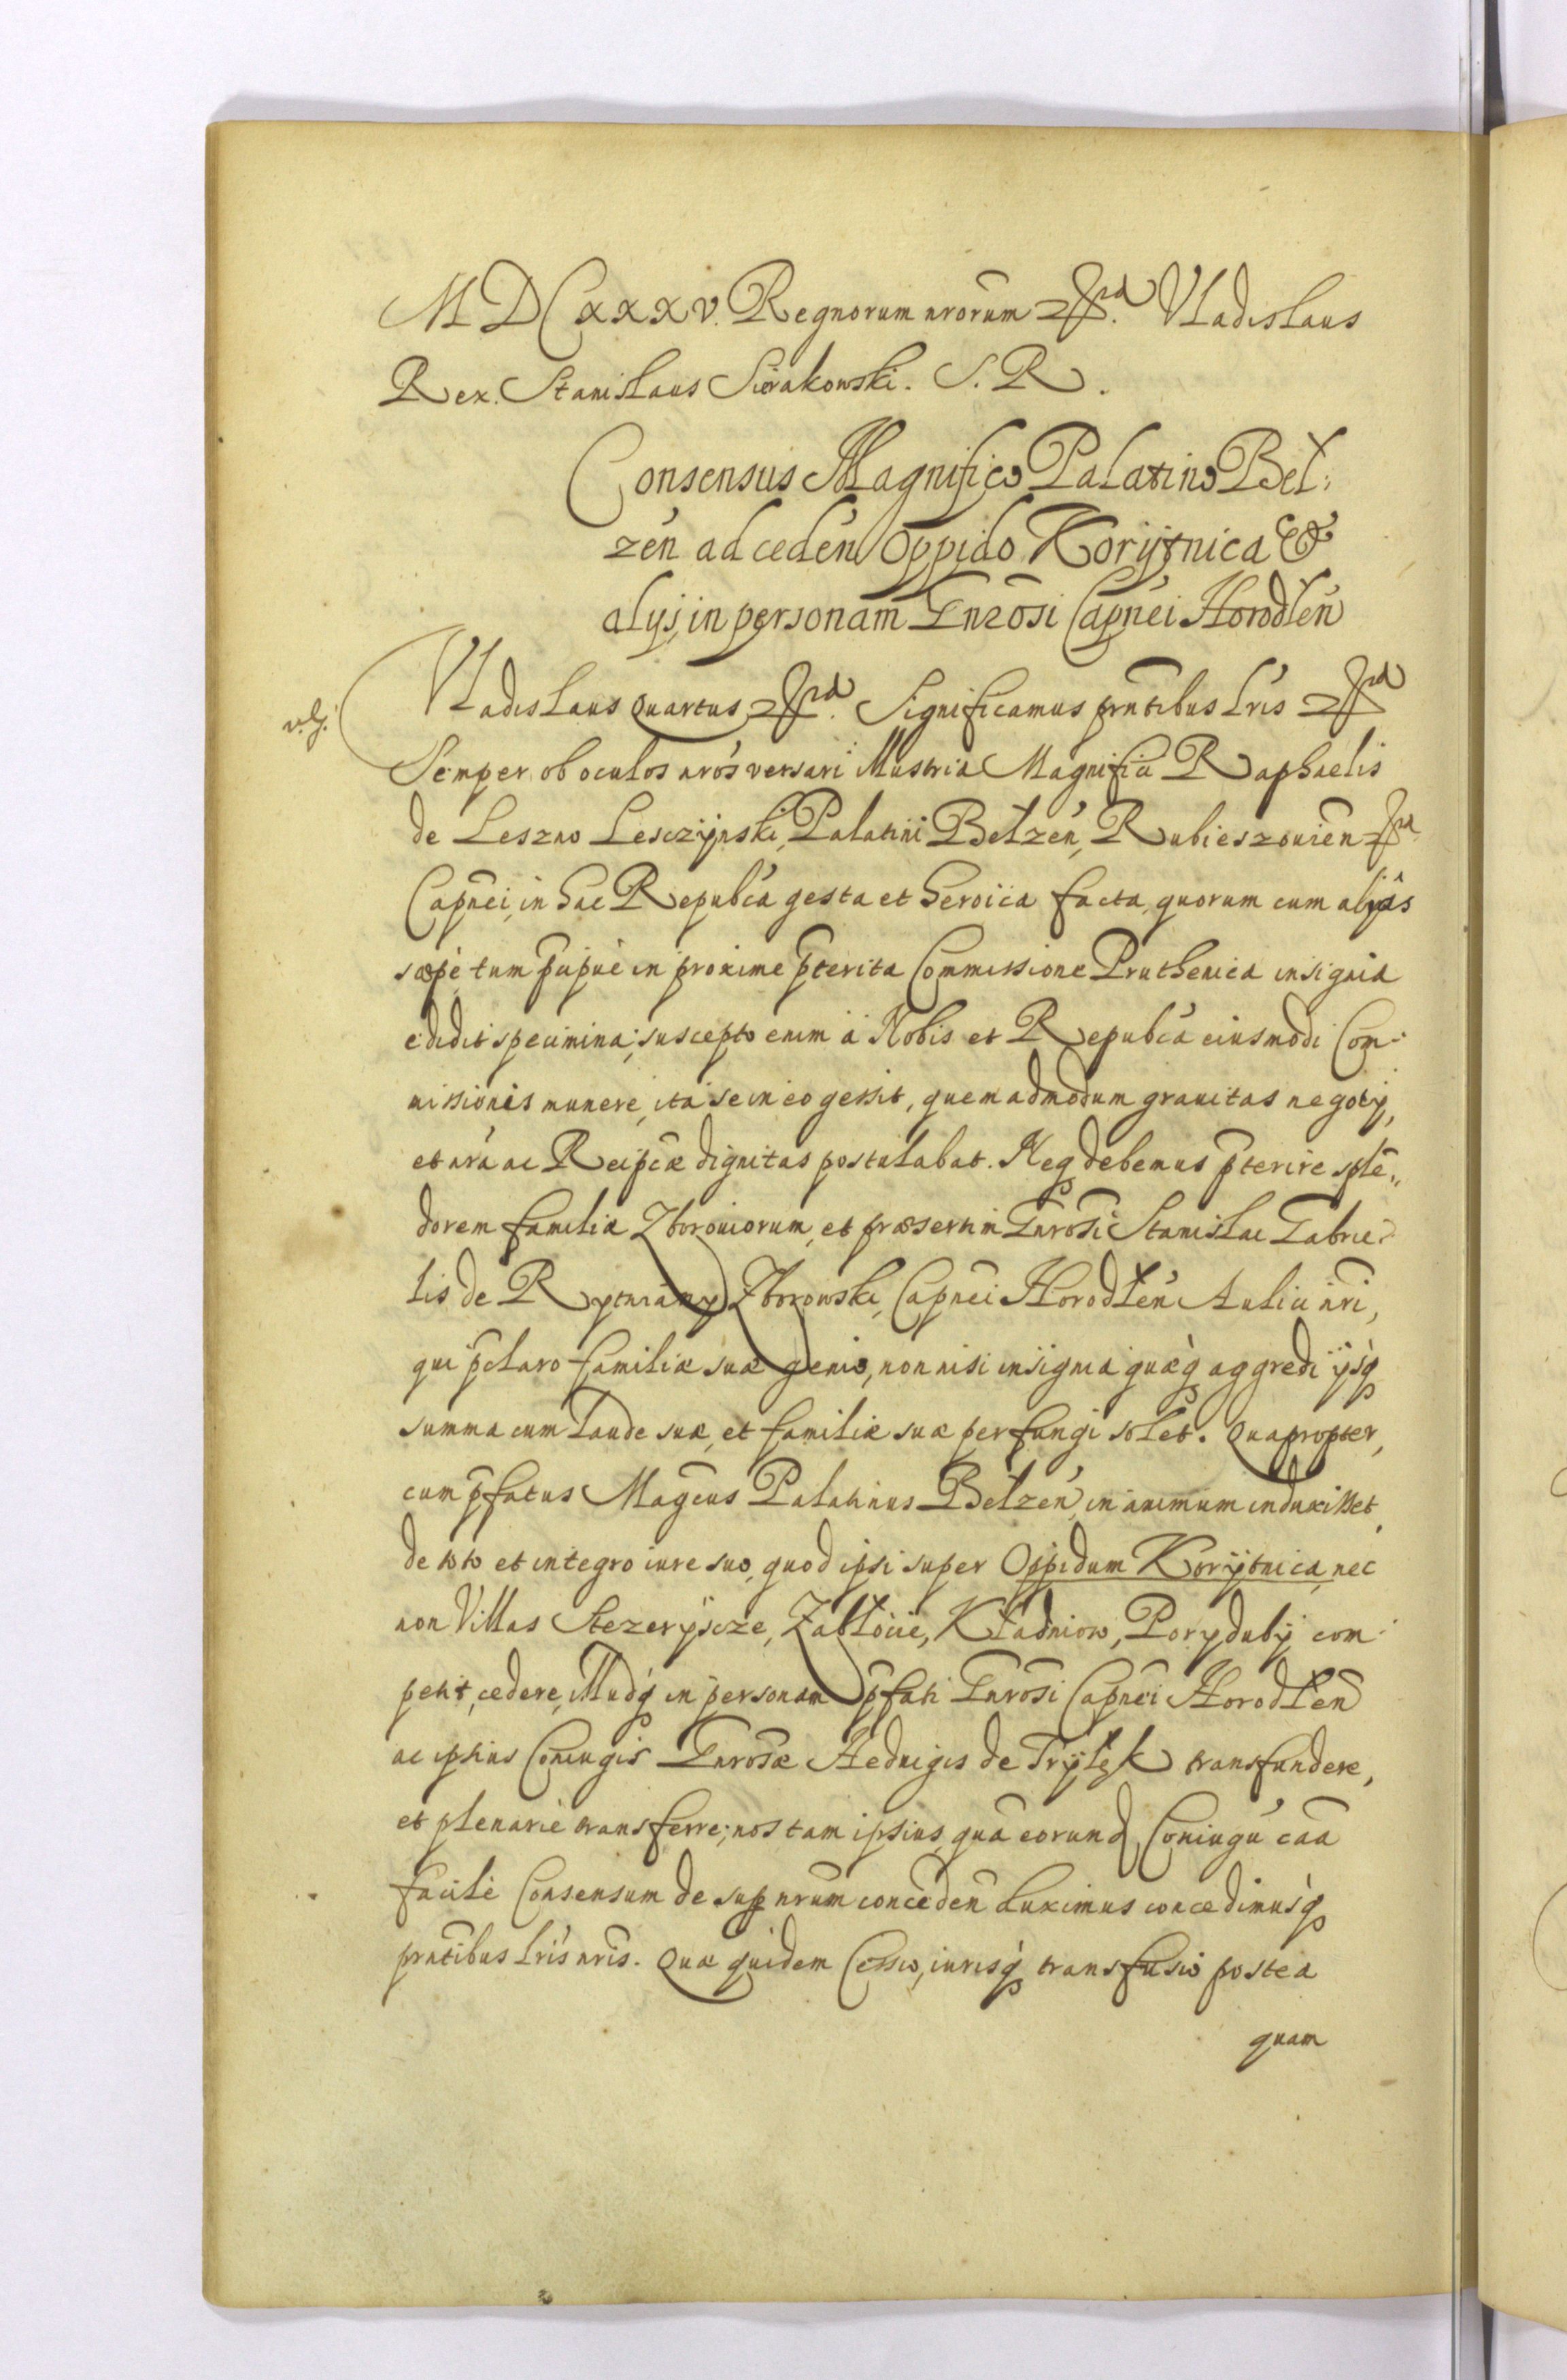 MDCxxxv. Regnorum nrorum &c. Vladislaus
Rex. Stanislaus Sierakowski. S. R.
Consensus Magnifico Palatino Bel:
zen ad ceden Oppido Korÿtnica &
alijs, in personam Gnrosi Capnei Horodłen
Vladislaus Quartus &c. Significamus prntibus lris &c.
Semper ob oculos nros versari Illustria Magnifici Raphaelis
de Leszno Lesczÿnski, Palatini Bełzen, Rubieszouien &c.
Capnei, in hac Republca gesta et heroica facta, quorum cum alias
sæpè, tum in proxime pterita Commissione Pruthenica insignia
edidit specimina; suscepto enim à Nobis et Republca eiusmodi Com-
missionis munere, ita se in eo gessit, quemadmodum grauitas negotij,
et nra ac Reipcæ dignitas postulabat. Neq debemus pterire splē„
dorem familiæ Zboroviorum, et præsertim Gnrosi Stanislai Gabrie-
lis de Rytwiany Zborowski, Capnei Horodłen Aulici nri,
qui pclaro familiæ suæ genio, non nisi insignia quæq aggredi ijsq
summa cum laude suæ, et familiæ suæ perfungi solet. Quapropter,
cum pfatus Magcus Palatinus Bełzen, in animum induxisset,
de toto et integro iure suo, quod ipsi super Oppidum Korÿtnica, nec
non Villas Stezerÿscze, Zabłocie, Kładniow, Porydubÿ com-
petit, cedere, illudq in personam pfati Gnrosi Capnei Horodłen
ac ipsius Coniugis Gnrosæ Heduigis de Trÿlęk transfundere,
et plenariè transferre; nos tam ipsius, quā eorund Coniugū caā
facilè Consensum de sup nrum conceden duximus concedimusq
prntibus lris nris. Quæ quidem Cessio, iurisq transfusio postea
quam